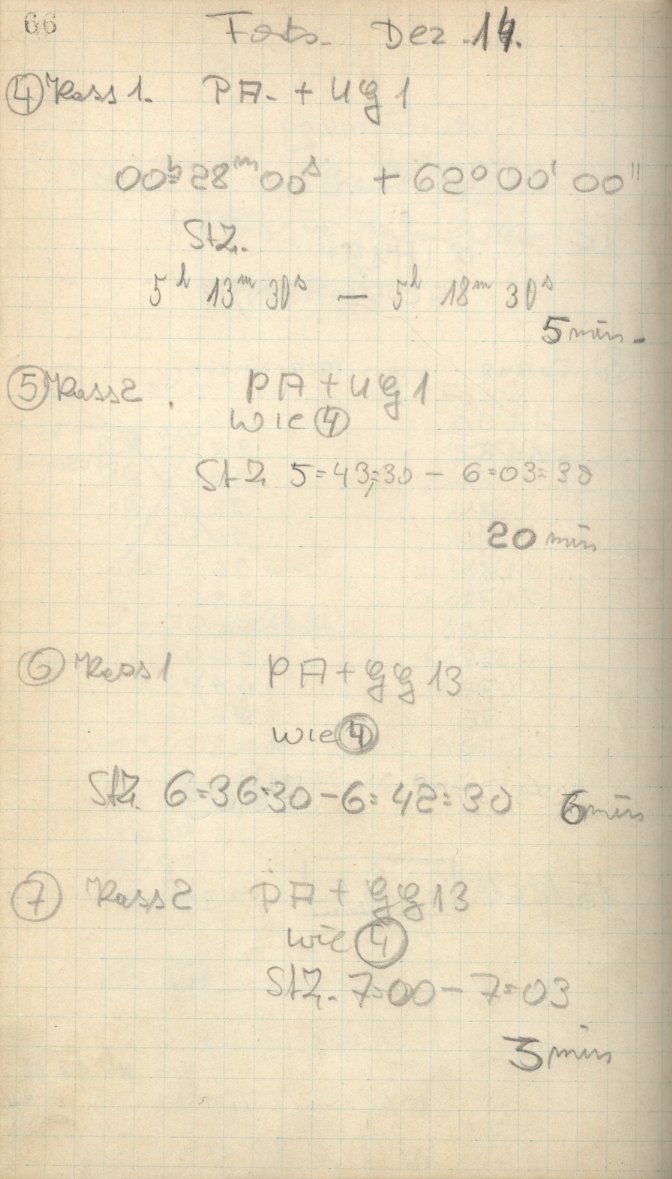 66
Forts. Dez. 14.
④ Kass 1. PA. + UG 1
00h 28m 00s + 62° 00' 00"
StZ.
5h 13m 30s — 5h 18m 30s
5 min.
⑤ Kass 2. PA + UG 1
wie ④
StZ 5=43=30 - 6=03=30
20 min
⑥ Kass 1 PA + GG 13
wie ④
StZ. 6=36=30 - 6=42=30 6 min
⑦ Kass 2 PA + GG 13
wie ④
StZ. 7=00 - 7=03
3 min